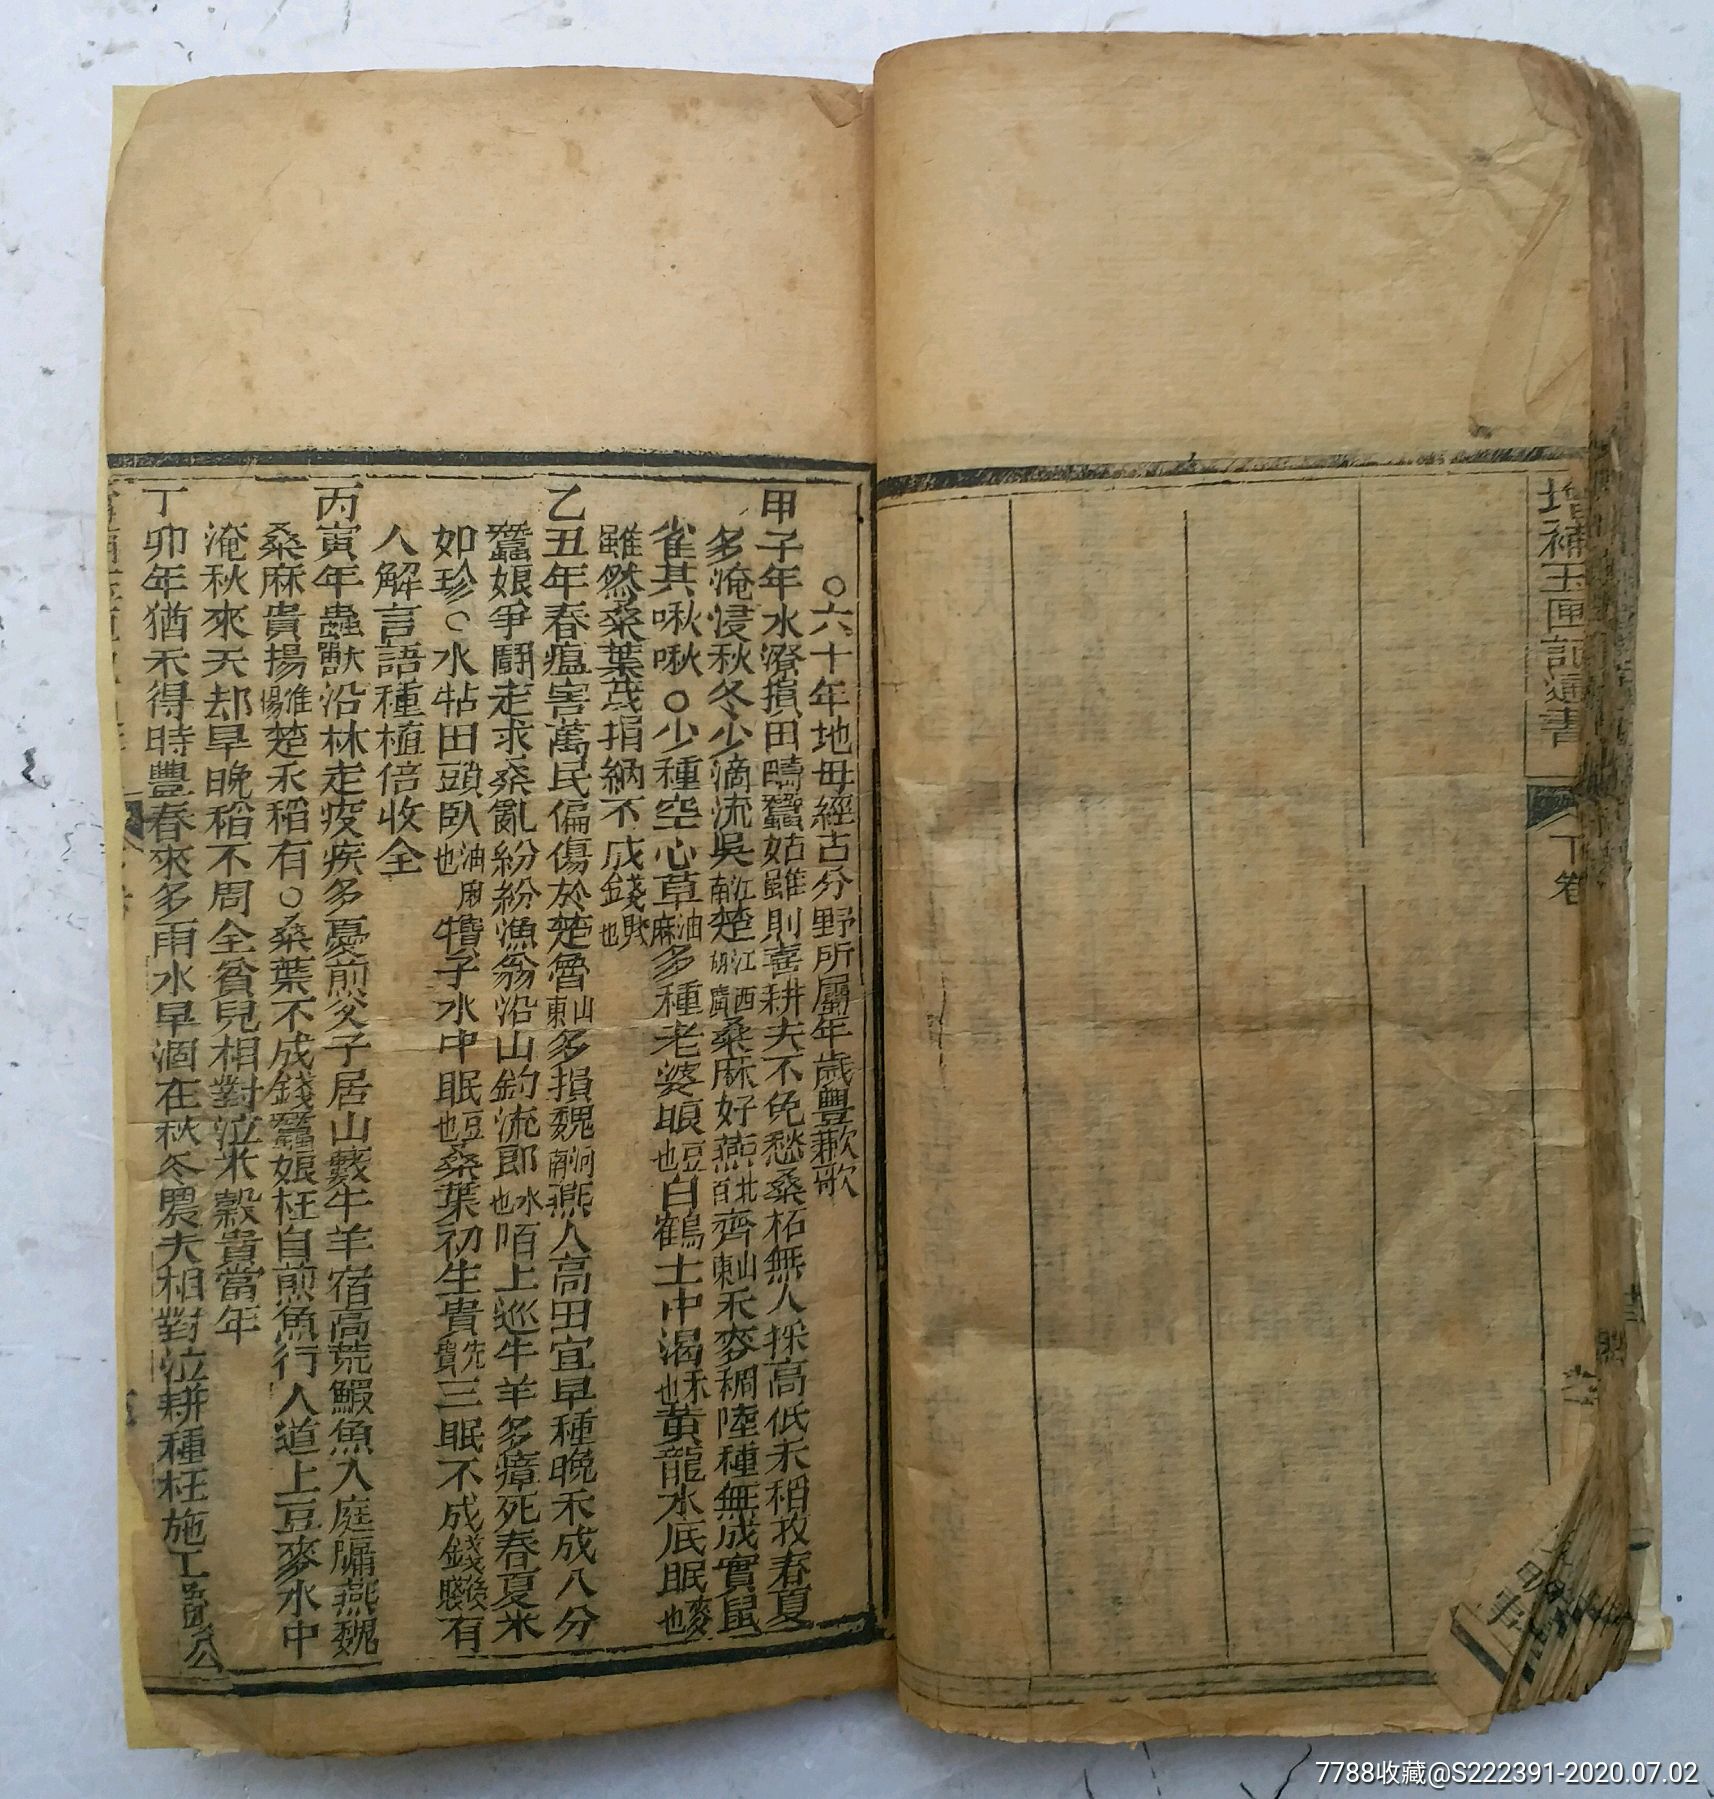 增補玉匣記通書
下卷
○六十年地母經古分野所屬年歲豐歉歌
甲子年水潦損田疇蠶姑雖則喜耕夫不免愁桑柘無人採高低禾稻孜春夏
多淹浸秋冬少滴流吳江南楚江西湖廣桑麻好燕北百齊山東禾麥稠陸種無成實鼠
雀其啾啾○少種空心草油麻多種老婆眼豆也白鶴土中渴禾也黃龍水底眠麥也
雖然桑葉茂捐納不成錢賤也
乙丑年春瘟害萬民偏傷於楚魯山東多損魏河南燕人高田宜早種晚禾成八分
蠶娘爭鬪走求桑亂紛紛漁翁沿山釣流郎水也陌上巡牛羊多瘴死春夏米
如珍○水牯田頭臥油麻也犢子水中眠豆也桑葉初生貴先貴三眠不成錢後賤有
人解言語種植倍收全
丙寅年蟲獸沿林走疫疾多憂煎父子居山藪牛羊宿高荒鰕魚入庭牖燕魏
桑麻貴揚淮楊楚禾稻有○桑葉不成錢蠶娘枉自煎魚行人道上豆麥水中
淹秋來天却旱晚稻不周全貧兒相對泣米穀貴當年
丁卯年猶禾得時豐春來多雨水旱涸在秋冬農夫相對泣耕種枉施工
7788收藏@S222391-2020.07.02